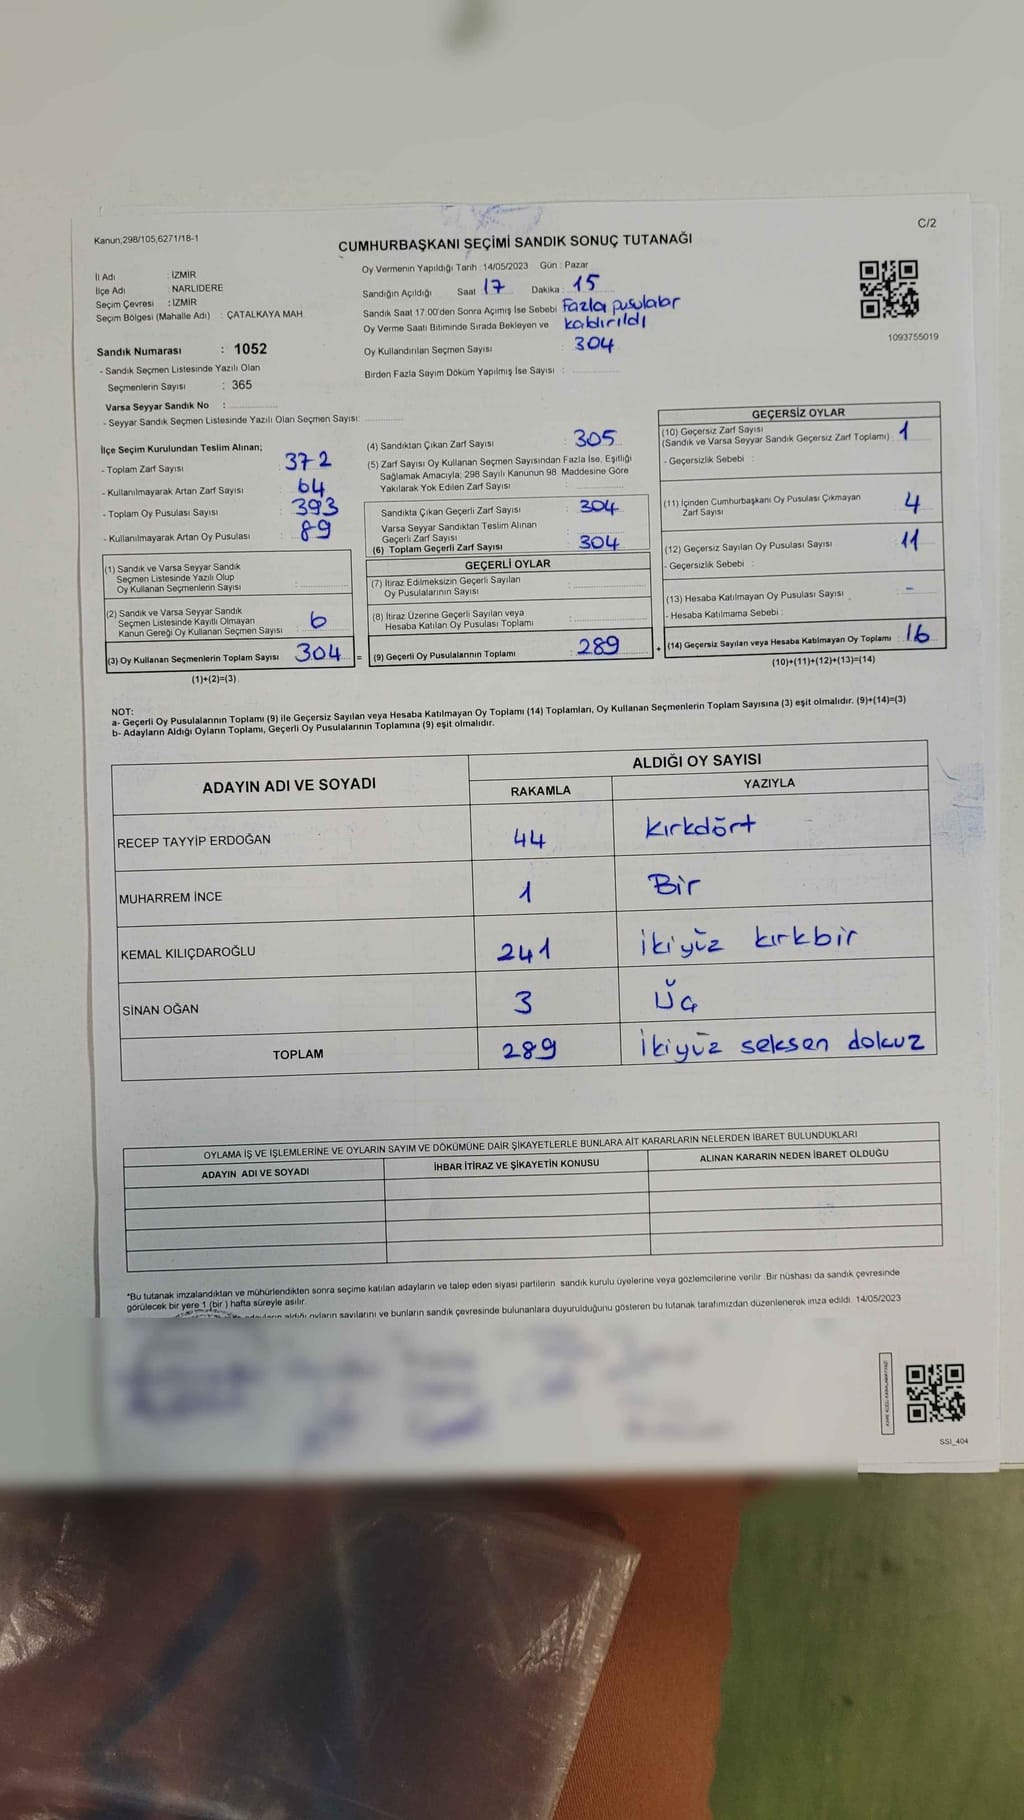 Kanun;298/105,6271/18-1
C/2
CUMHURBAŞKANI SEÇİMİ SANDIK SONUÇ TUTANAĞI
İl Adı : İZMİR
İlçe Adı : NARLIDERE
Seçim Çevresi : İZMİR
Seçim Bölgesi (Mahalle Adı) : ÇATALKAYA MAH
Sandık Numarası : 1052
- Sandık Seçmen Listesinde Yazılı Olan
Seçmenlerin Sayısı : 365
Varsa Seyyar Sandık No :
- Seyyar Sandık Seçmen Listesinde Yazılı Olan Seçmen Sayısı:
Oy Vermenin Yapıldığı Tarih : 14/05/2023 Gün : Pazar
Sandığın Açıldığı Saat 17 Dakika : 15
Sandık Saat 17.00'den Sonra Açımış İse Sebebi Fazla pusulalar
Oy Verme Saati Bitiminde Sırada Bekleyen ve kaldırıldı
Oy Kullandırılan Seçmen Sayısı : 304
Birden Fazla Sayım Döküm Yapılmış İse Sayısı :
1093755019
İlçe Seçim Kurulundan Teslim Alınan;
- Toplam Zarf Sayısı : 372
- Kullanılmayarak Artan Zarf Sayısı : 64
- Toplam Oy Pusulası Sayısı : 393
- Kullanılmayarak Artan Oy Pusulası : 89
(1) Sandık ve Varsa Seyyar Sandık
Seçmen Listesinde Yazılı Olup
Oy Kullanan Seçmenlerin Sayısı :
(2) Sandık ve Varsa Seyyar Sandık
Seçmen Listesinde Kayıtlı Olmayan
Kanun Gereği Oy Kullanan Seçmen Sayısı : 6
(3) Oy Kullanan Seçmenlerin Toplam Sayısı : 304 =
(1)+(2)=(3)
(4) Sandıktan Çıkan Zarf Sayısı : 305
(5) Zarf Sayısı Oy Kullanan Seçmen Sayısından Fazla İse, Eşitliği
Sağlamak Amacıyla; 298 Sayılı Kanunun 98 Maddesine Göre
Yakılarak Yok Edilen Zarf Sayısı :
Sandıkta Çıkan Geçerli Zarf Sayısı : 304
Varsa Seyyar Sandıktan Teslim Alınan
Geçerli Zarf Sayısı :
(6) Toplam Geçerli Zarf Sayısı : 304
GEÇERLİ OYLAR
(7) İtiraz Edilmeksizin Geçerli Sayılan
Oy Pusulalarının Sayısı :
(8) İtiraz Üzerine Geçerli Sayılan veya
Hesaba Katılan Oy Pusulası Toplamı :
(9) Geçerli Oy Pusulalarının Toplamı : 289 +
GEÇERSİZ OYLAR
(10) Geçersiz Zarf Sayısı
(Sandık ve Varsa Seyyar Sandık Geçersiz Zarf Toplamı) : 1
- Geçersizlik Sebebi :
(11) İçinden Cumhurbaşkanı Oy Pusulası Çıkmayan
Zarf Sayısı : 4
(12) Geçersiz Sayılan Oy Pusulası Sayısı : 11
- Geçersizlik Sebebi :
(13) Hesaba Katılmayan Oy Pusulası Sayısı : -
- Hesaba Katılmama Sebebi :
(14) Geçersiz Sayılan veya Hesaba Katılmayan Oy Toplamı : 16
(10)+(11)+(12)+(13)=(14)
NOT:
a- Geçerli Oy Pusulalarının Toplamı (9) ile Geçersiz Sayılan veya Hesaba Katılmayan Oy Toplamı (14) Toplamları, Oy Kullanan Seçmenlerin Toplam Sayısına (3) eşit olmalıdır. (9)+(14)=(3)
b- Adayların Aldığı Oyların Toplamı, Geçerli Oy Pusulalarının Toplamına (9) eşit olmalıdır.
ADAYIN ADI VE SOYADI
ALDIĞI OY SAYISI
RAKAMLA YAZIYLA
RECEP TAYYİP ERDOĞAN 44 Kırkdört
MUHARREM İNCE 1 Bir
KEMAL KILIÇDAROĞLU 241 İkiyüz kırkbir
SİNAN OĞAN 3 Üç
TOPLAM 289 İkiyüz seksen dokuz
OYLAMA İŞ VE İŞLEMLERİNE VE OYLARIN SAYIM VE DÖKÜMÜNE DAİR ŞİKAYETLERLE BUNLARA AİT KARARLARIN NELERDEN İBARET BULUNDUKLARI
ADAYIN ADI VE SOYADI İHBAR İTİRAZ VE ŞİKAYETİN KONUSU ALINAN KARARIN NEDEN İBARET OLDUĞU
*Bu tutanak imzalandıktan ve mühürlendikten sonra seçime katılan adayların ve talep eden siyasi partilerin sandık kurulu üyelerine veya gözlemcilerine verilir. Bir nüshası da sandık çevresinde
görülecek bir yere 1 (bir ) hafta süreyle asılır.
aldığı oyların sayılarını ve bunların sandık çevresinde bulunanlara duyurulduğunu gösteren bu tutanak tarafımızdan düzenlenerek imza edildi. 14/05/2023
SSI_404